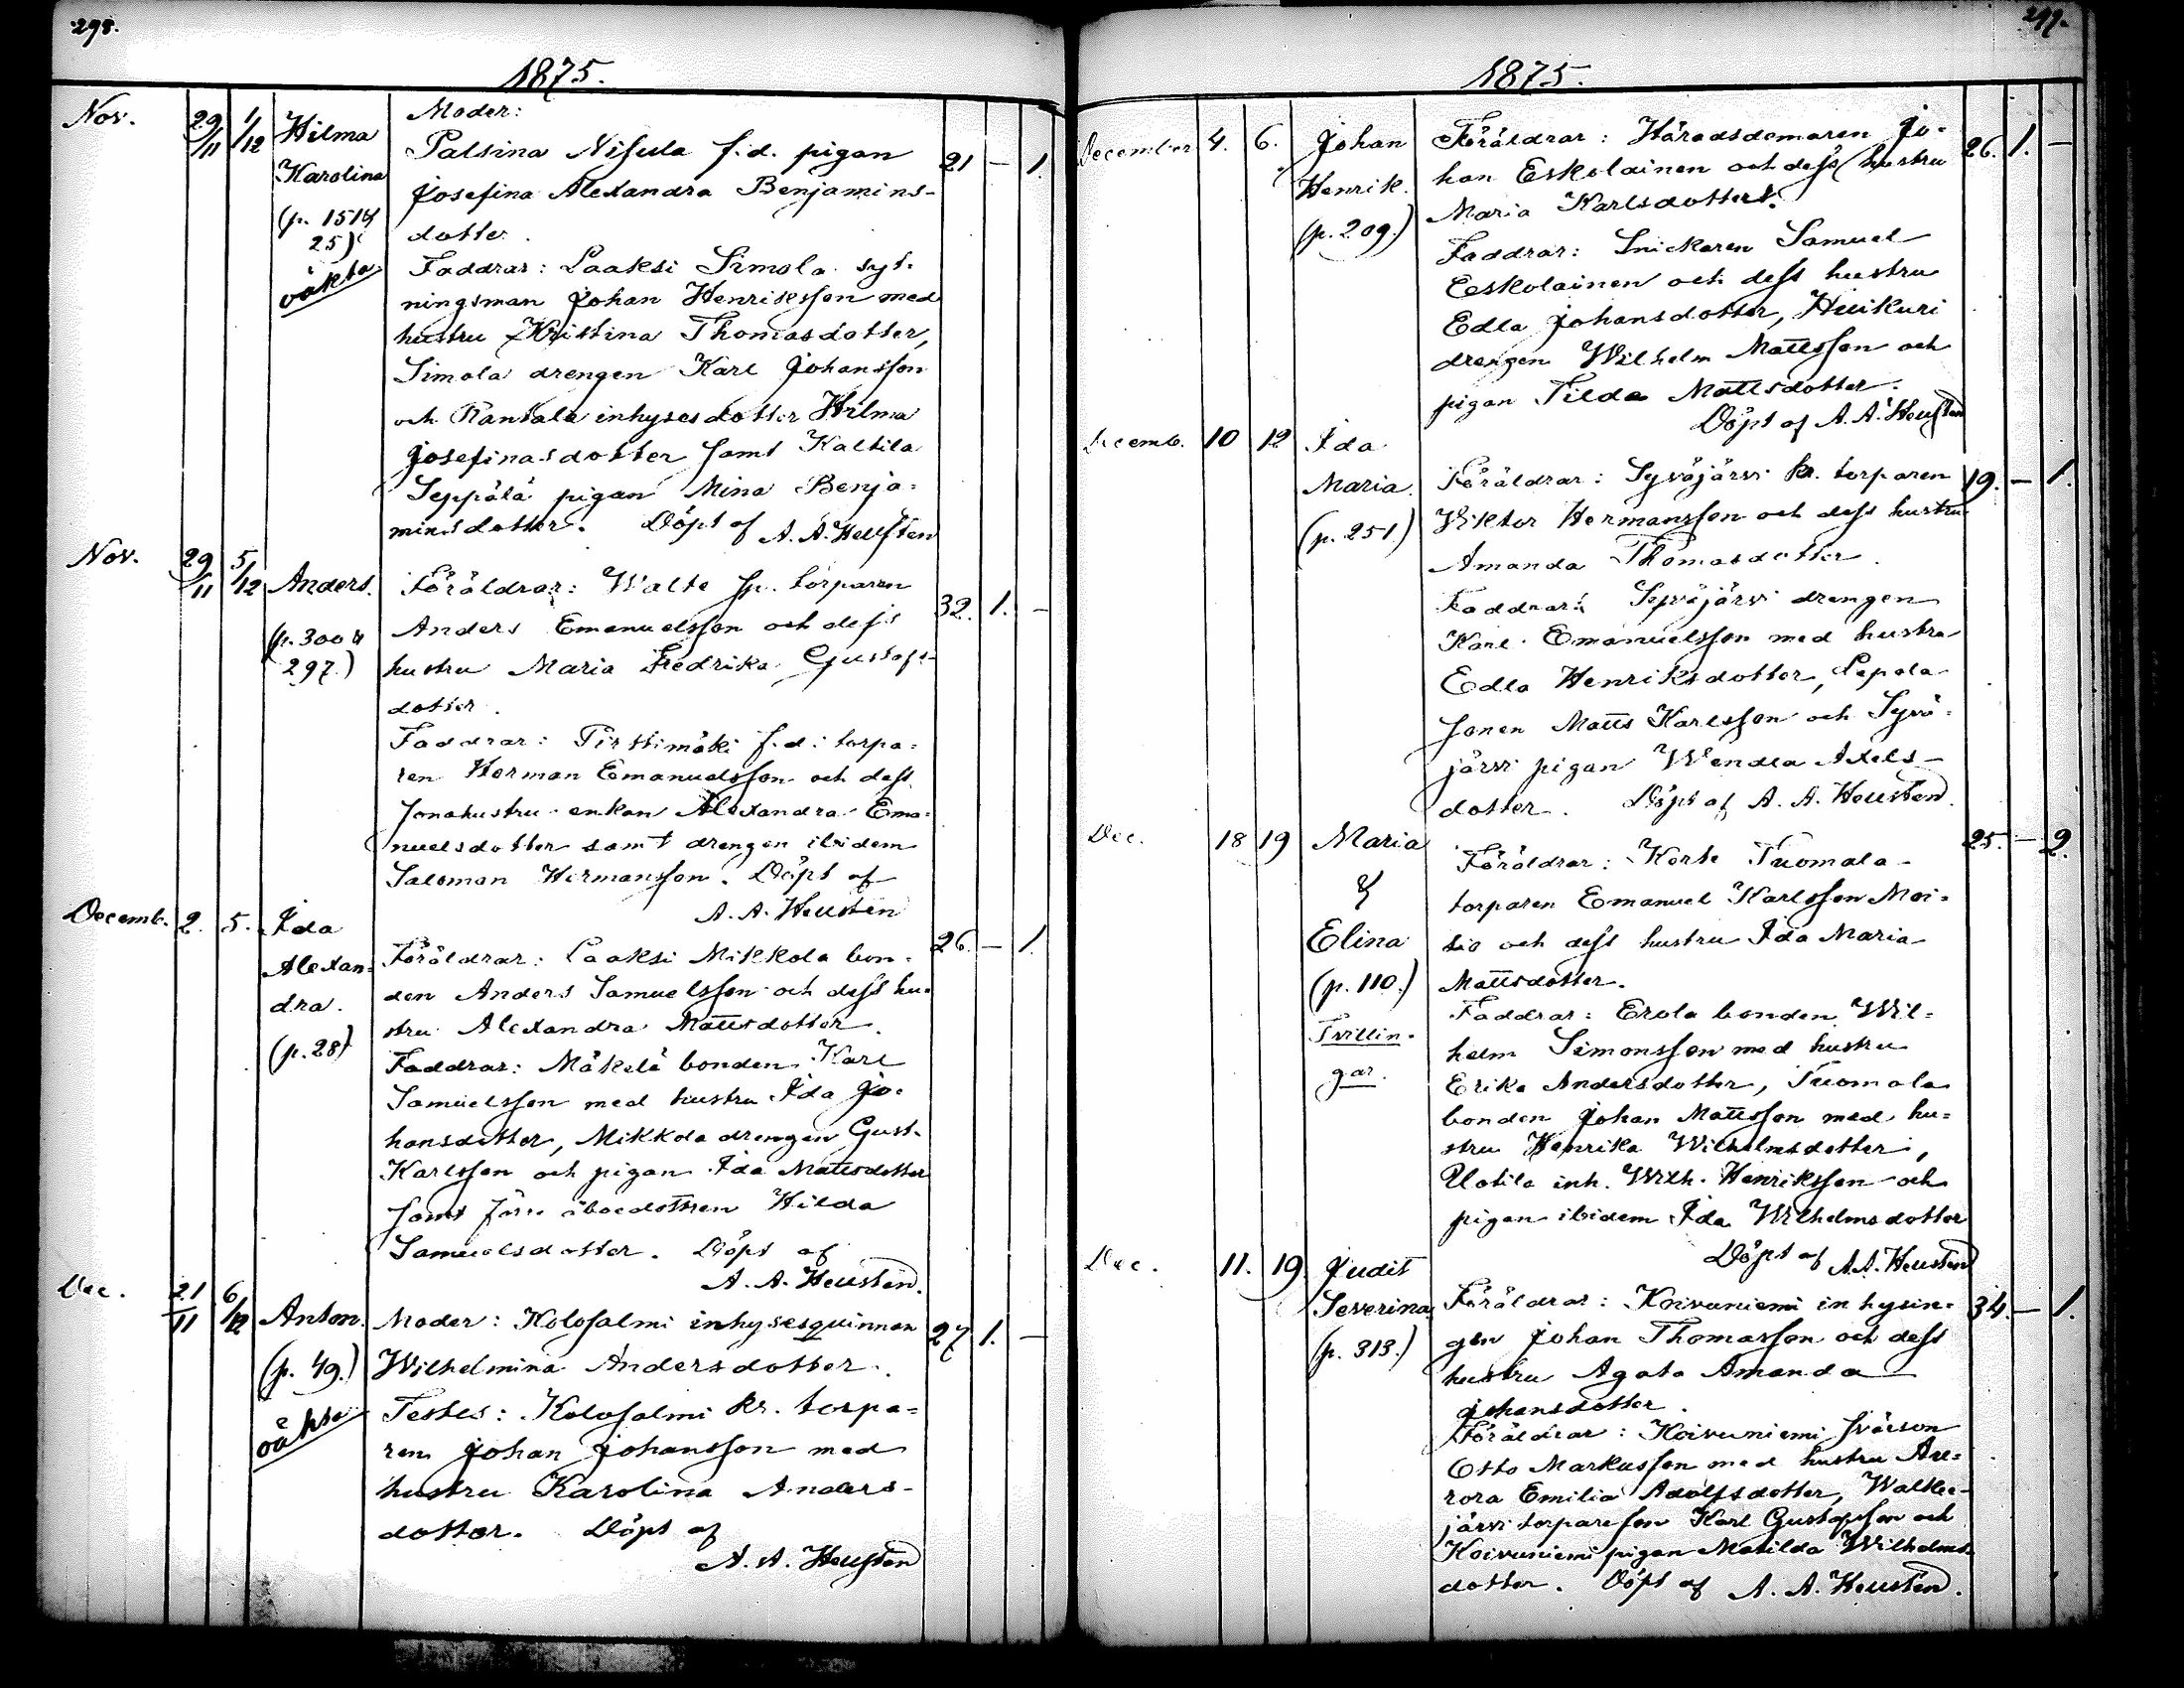 298.
1875.
Nov. 29/11 1/12 Hilma Karolina (p. 1514 25) oäkta
Moder:
Palsina Nisula f.d. pigan 21 — 1.
Josefina Alexandra Benjamins-
dotter.
Faddrar: Laaksi Simola syt-
ningsman Johan Henriksson med
hustru Kristina Thomasdotter,
Simola drengen Karl Johansson
och Rantala inhysesdotter Hilma
Josefinasdotter samt Kaltila
Seppälä pigan Mina Benja-
minsdotter. Döpt af A. A. Heusten
Nov. 29/11 5/12 Anders. (p. 300 & 297.)
Föräldrar: Walte sp. torparen
Anders Emanuelsson och dess 32. 1. —
hustru Maria Fredrika Gustafs-
dotter.
Faddrar: Pirttimäki f.d. torpa-
ren Herman Emanuelsson och dess
sonahustru enkan Alexandra Ema-
nuelsdotter samt drengen ibidem
Saloman Hermansson. Döpt af
A. A. Heusten
Decemb. 2. 5. Ida Alexan- dra. (p. 28)
Föräldrar: Laaksi Mikkola bon- 26. — 1.
den Anders Samuelsson och dess hu-
stru Alexandra Mattsdotter.
Faddrar: Mäkelä bonden Karl
Samuelsson med hustru Ida Jo-
hansdotter, Mikkola drengen Gust.
Karlsson och pigan Ida Mattsdotter
samt åboedottren Hilda
Samuelsdotter. Döpt af
A. A. Heusten.
Dec. 21/11 6/12 Anton. (p. 49.) oäkta
Moder: Kolosalmi inhysesquinnan 27 1. —
Wilhelmina Andersdotter.
Testes: Kolosalmi kr. torpa-
ren Johan Johansson med
hustru Karolina Anders-
dotter. Döpt af
A. A. Heusten
299.
1875.
December 4. 6. Johan Henrik. (p. 209.)
Föräldrar: Häradsdomaren Jo- 26. 1. —
han Eskolainen och dess hustru
Maria Karlsdotter.
Faddrar: Snickaren Samuel
Eeskolainen och dess hustru
Edla Johansdotter, Huikuri
drengen Wilhelm Mattsson och
pigan Tilda Mattsdotter.
Döpt af A. A. Heusten
Decemb. 10 12 Ida Maria. (p. 251.)
Föräldrar: Syväjärvi kr. torparen 19. — 1.
Viktor Hermansson och dess hustru
Amanda Thomasdotter.
Faddrar: Syväjärvi drengen
Karl Emanuelsson med hustru
Edla Henriksdotter, Lepola
sonen Matts Karlsson och Syvä-
järvi pigan Wendla Axels-
dotter. Döpt af A. A. Heusten.
Dec. 18 19 Maria & Elina (p. 110.) Tvillin- gar.
Föräldrar: Korte Tuomala 25. — 2.
torparen Emanuel Karlsson Moi-
sio och dess hustru Ida Maria
Mattsdotter.
Faddrar: Erola bonden Wil-
helm Simonsson med hustru
Erika Andersdotter, Tuomola
bonden Johan Mattsson med hu-
stru Henrika Wilhelmsdotter,
Uotila inh. Wilh. Henriksson och
pigan ibidem Ida Wilhelmsdotter
Döpt af A. A. Heusten
Dec. 11. 19. Judit Severina. (p. 313.)
Föräldrar: Koivuniemi inhysin- 34. — 1.
gen Johan Thomasson och dess
hustru Agata Amanda
Johansdotter.
Föräldrar: Koivuniemi svärson
Otto Markusson med hustru Au-
rora Emilia Adolfsdotter, Walkee-
järvi torpareson Karl Gustafsson och
Koivuniemi pigan Matilda Wilhelms-
dotter. Döpt af A. A. Heusten.